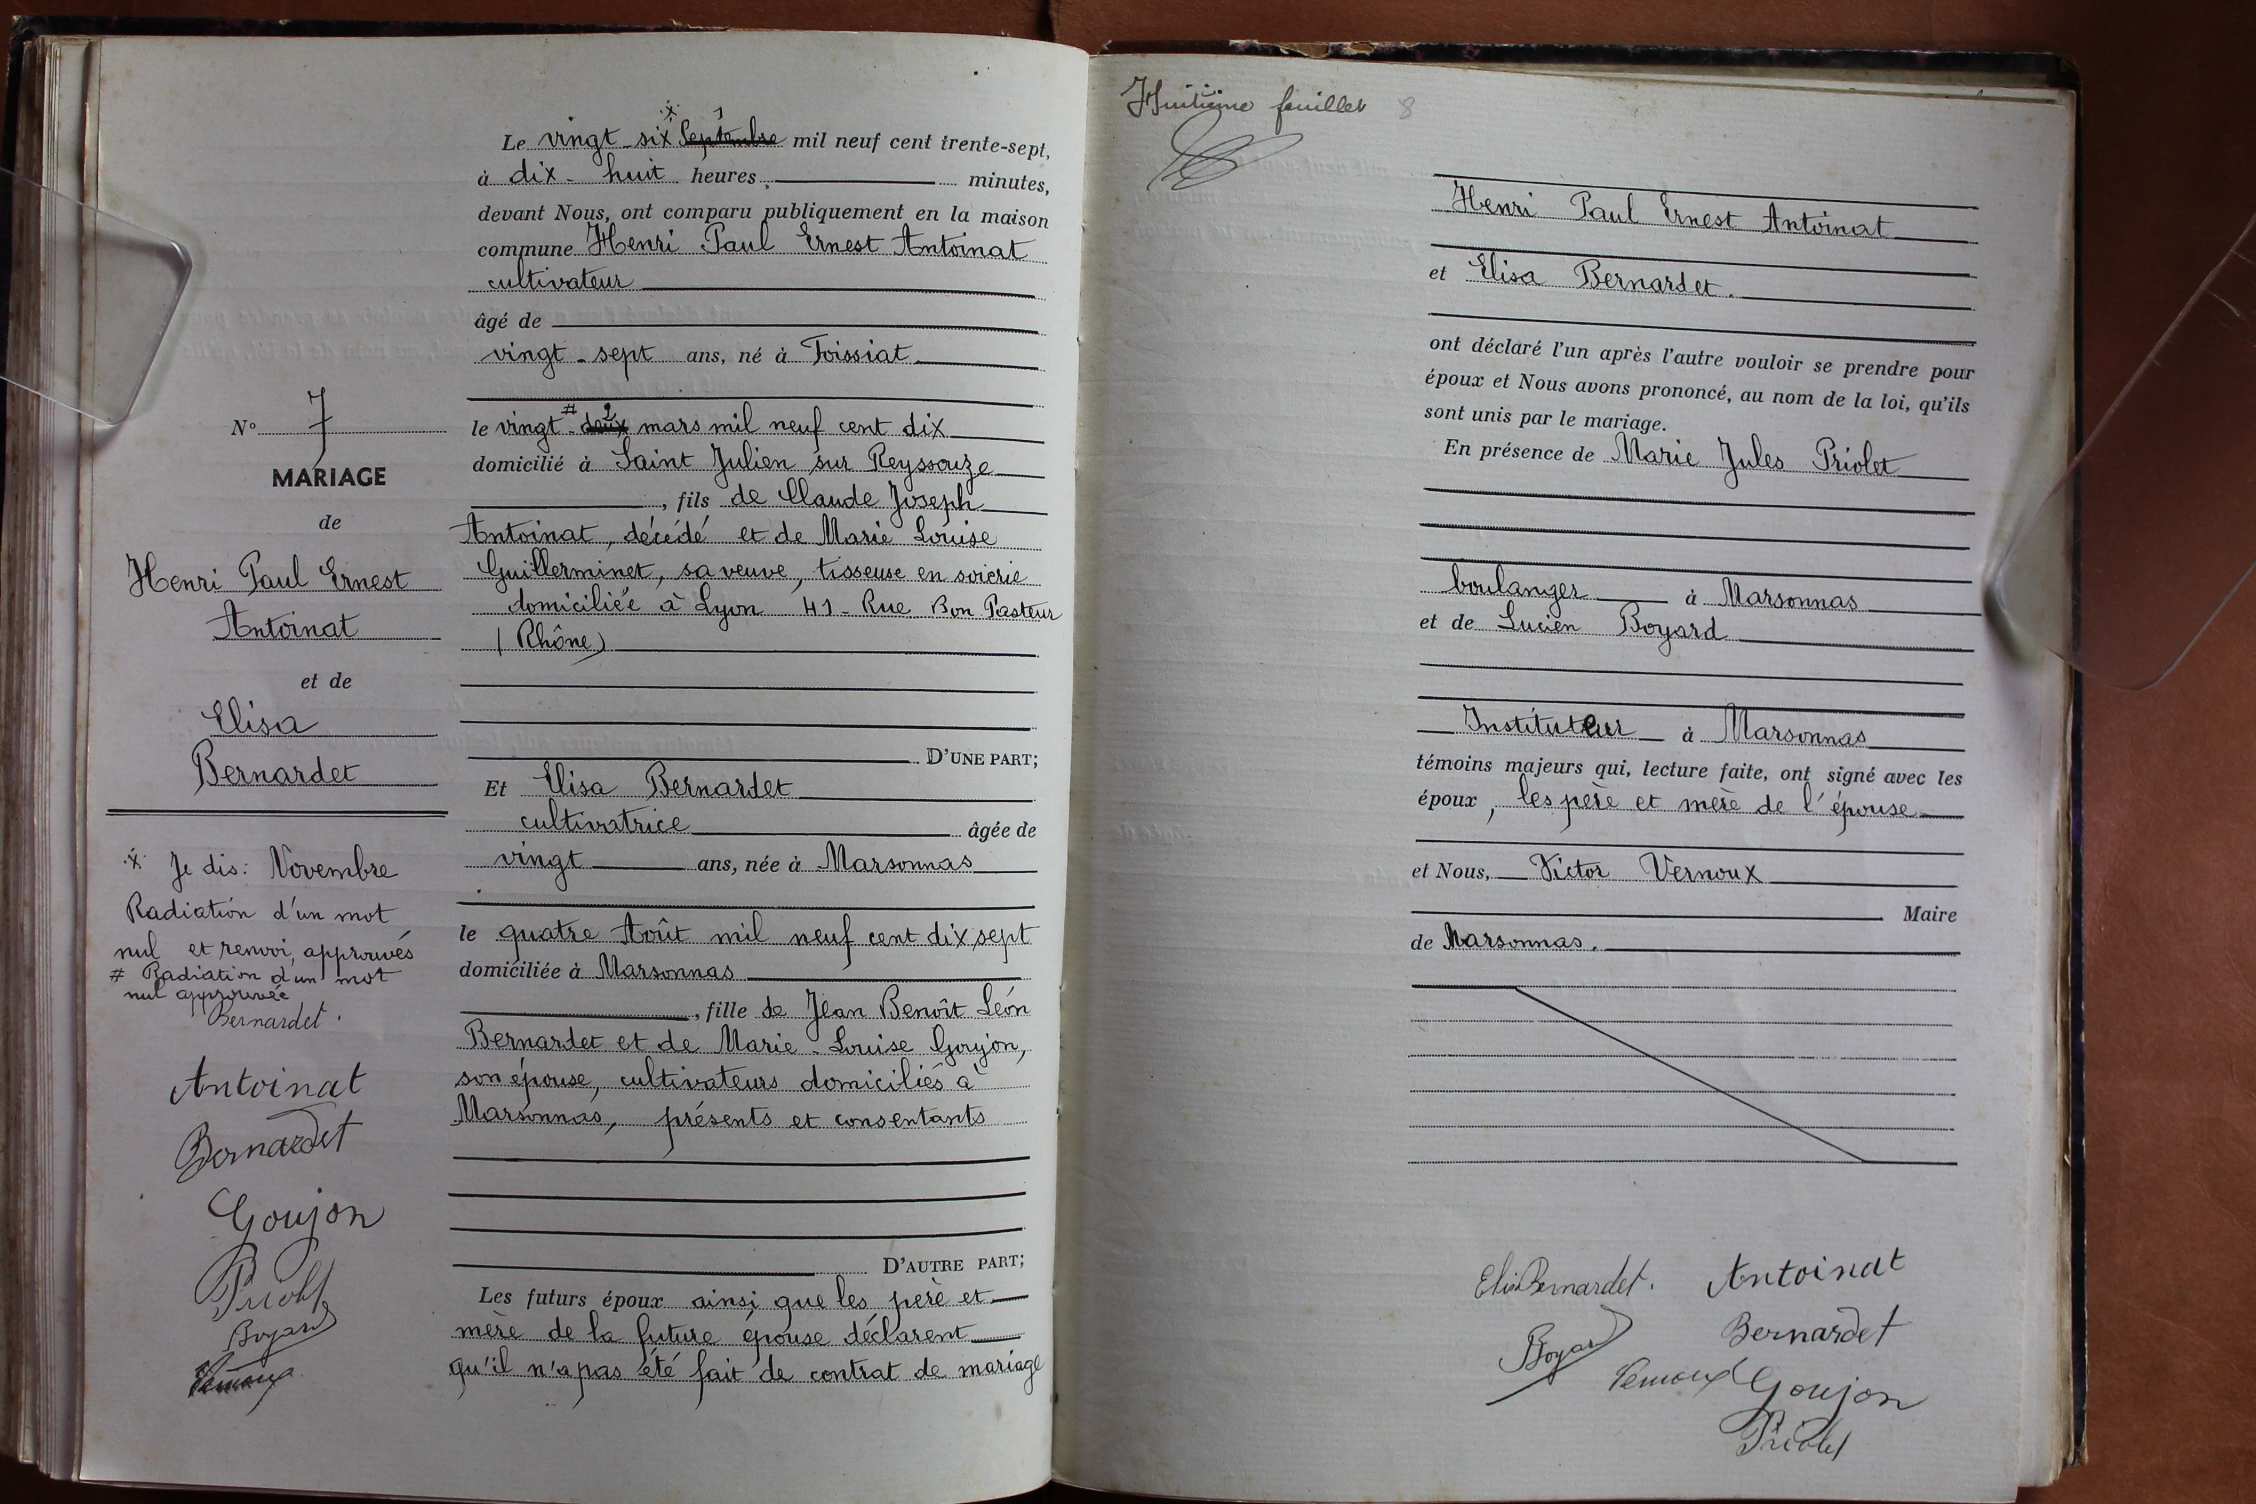 N° 7
MARIAGE
de
Henri Paul Ernest
Antoinat
et de
Elisa
Bernardet
Je dis: Novembre
Radiation d'un mot
nul et renvoi, approuvés
# Radiation d'un mot
nul approuvée
Bernardet.
Antoinat
Bernardet
Goujon
Priolet
Boyard
Vernoux
Le vingt-six Septembre mil neuf cent trente-sept,
à dix-huit heures minutes,
devant Nous, ont comparu publiquement en la maison
commune Henri Paul Ernest Antoinat
cultivateur
âgé de
vingt-sept ans, né à Foissiat
le vingt-deux # 2 mars mil neuf cent dix
domicilié à Saint Julien sur Reyssouze
, fils de Claude Joseph
Antoinat, décédé et de Marie Louise
Guillerminet, sa veuve, tisseuse en soierie
domiciliée à Lyon 41-Rue Bon Pasteur
(Rhône)
D'UNE PART;
Et Elisa Bernardet
cultivatrice âgée de
vingt ans, née à Marsonnas
le quatre Août mil neuf cent dix sept
domiciliée à Marsonnas
, fille de Jean Benoît Léon
Bernardet et de Marie-Louise Goujon,
son épouse, cultivateurs domiciliés à
Marsonnas, présents et consentants
D'AUTRE PART;
Les futurs époux ainsi que les père et
mère de la future épouse déclarent
qu'il n'a pas été fait de contrat de mariage
Huitième feuillet 8
Henri Paul Ernest Antoinat
et Elisa Bernardet.
ont déclaré l'un après l'autre vouloir se prendre pour
époux et Nous avons prononcé, au nom de la loi, qu'ils
sont unis par le mariage.
En présence de Marie Jules Priolet
boulanger à Marsonnas
et de Lucien Boyard
Instituteur à Marsonnas
témoins majeurs qui, lecture faite, ont signé avec les
époux, les père et mère de l'épouse
et Nous, Victor Vernoux
Maire
de Marsonnas.
Elisa Bernardet. Antoinat
Boyard Bernardet
Vernoux Goujon
Priolet